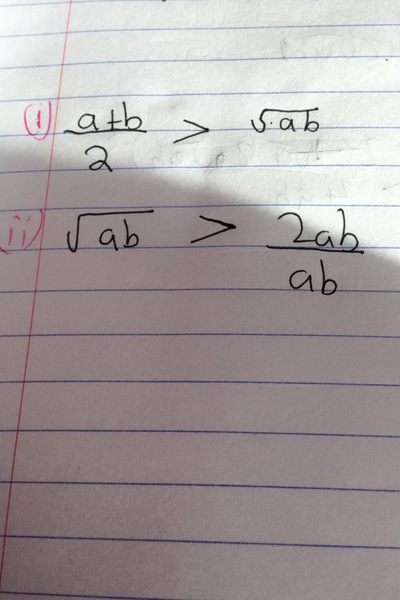 i) a+b/2 > √ab
ii) √ab > 2ab/ab